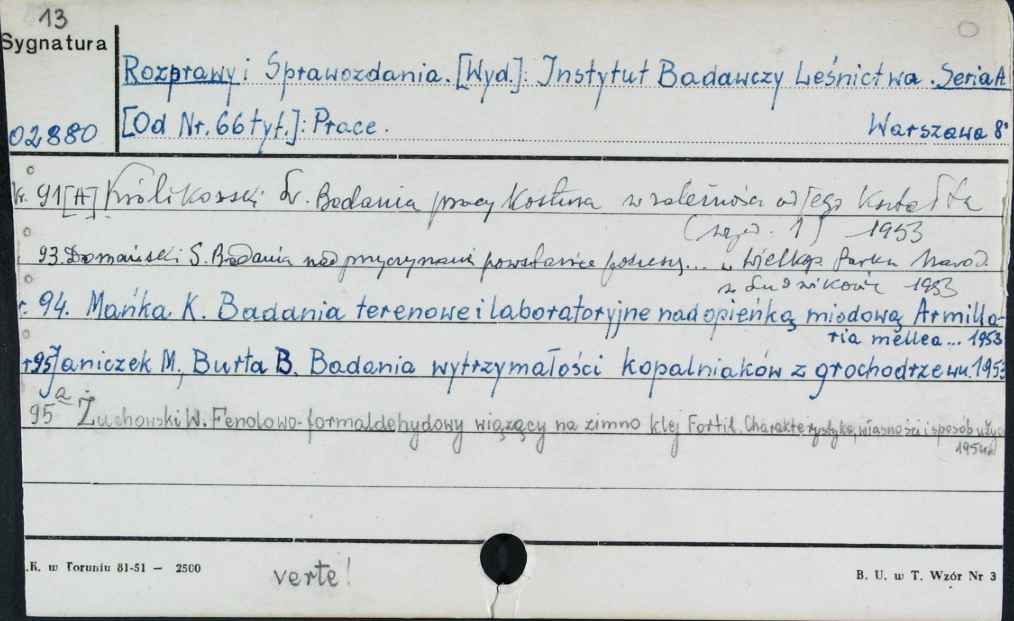 13
Sygnatura
Rozprawy i Sprawozdania. [Wyd.]: Instytut Badawczy Leśnictwa. Seria A
[Od Nr. 66 tyt.]: Prace.
Warszawa 8°
02880
91 [A] Królikowski L. Badania pracy Kostura w zależności od jego Kształtu
1) 1953
93. Domański S. Badania nad przyczynami powstania ... w Wielkop. Parku Narod.
w Ludwikowie 1953
94. Mańka K. Badania terenowe i laboratoryjne nad opieńką miodową Armilla-
ria mellea... 1953
95 Janiczek M., Burta B. Badania wytrzymałości kopalniaków z grochodrzewu. 1953
95a Żuchowski W. Fenolowo-formaldehydowy wiążący na zimno klej Fortil. Charakterystyka, własności i sposób użyc
1954
.K. w Toruniu 81-51 — 2500
verte!
B. U. w T. Wzór Nr 3